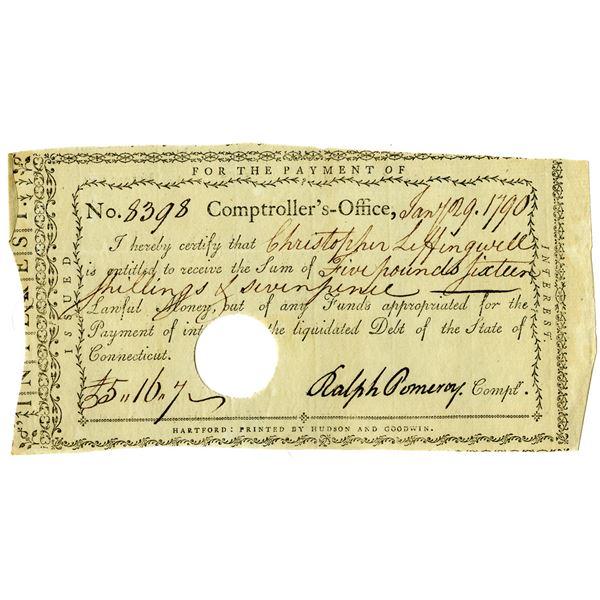 FOR THE PAYMENT OF
No. 8398 Comptroller's-Office, Jany 29. 1790
I hereby certify that Christopher Leffingwell
is entitled to receive the Sum of Five pounds Sixteen
shillings & seven pence
Lawful Money, out of any Funds appropriated for the
Payment of int the liquidated Debt of the State of
Connecticut.
£5,,16,,7
Ralph Pomeroy. Compt.
HARTFORD: PRINTED BY HUDSON AND GOODWIN.
ISSUED
INTEREST